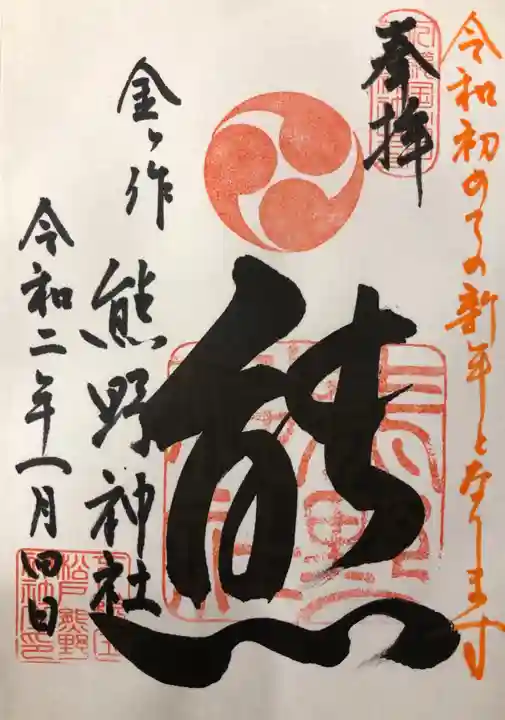 令和初めての新年となります
奉拝
熊
金ヶ作
熊野神社
令和二年一月四日